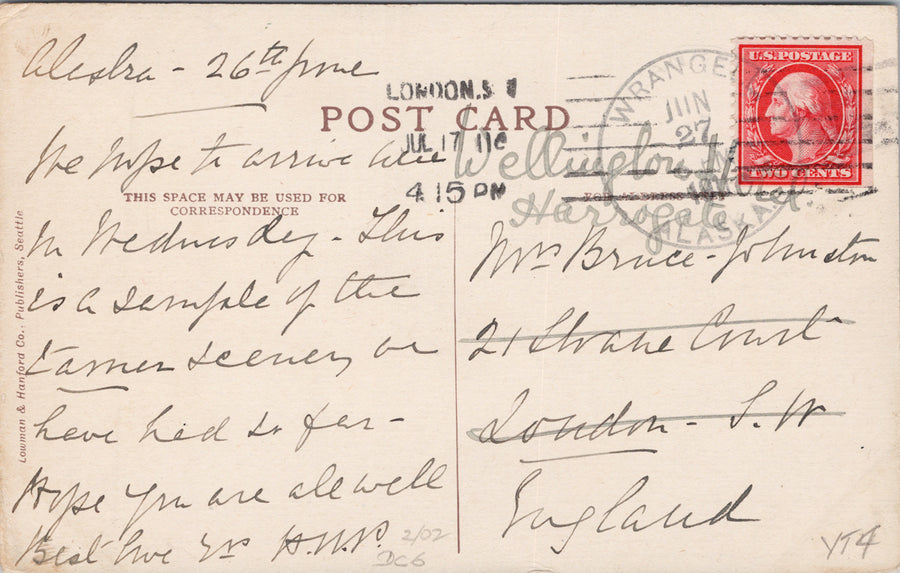 Alaska - 26th June
We hope to arrive
in Wednesday - This
is a sample of the
tamer scenery we
have had so far -
Hope you are all well
Best love Yrs H.W.P.
2/02
DC6
POST CARD
THIS SPACE MAY BE USED FOR
CORRESPONDENCE
Lowman & Hanford Co., Publishers, Seattle
LONDON. S W
JUL 17 10
4 15 PM
WRANGELL
JUN
27
ALASKA
U.S. POSTAGE
TWO CENTS
Wellington
Harrogate
Mrs Bruce-Johnston
21 Sloane Court
London - S. W
England
YT4